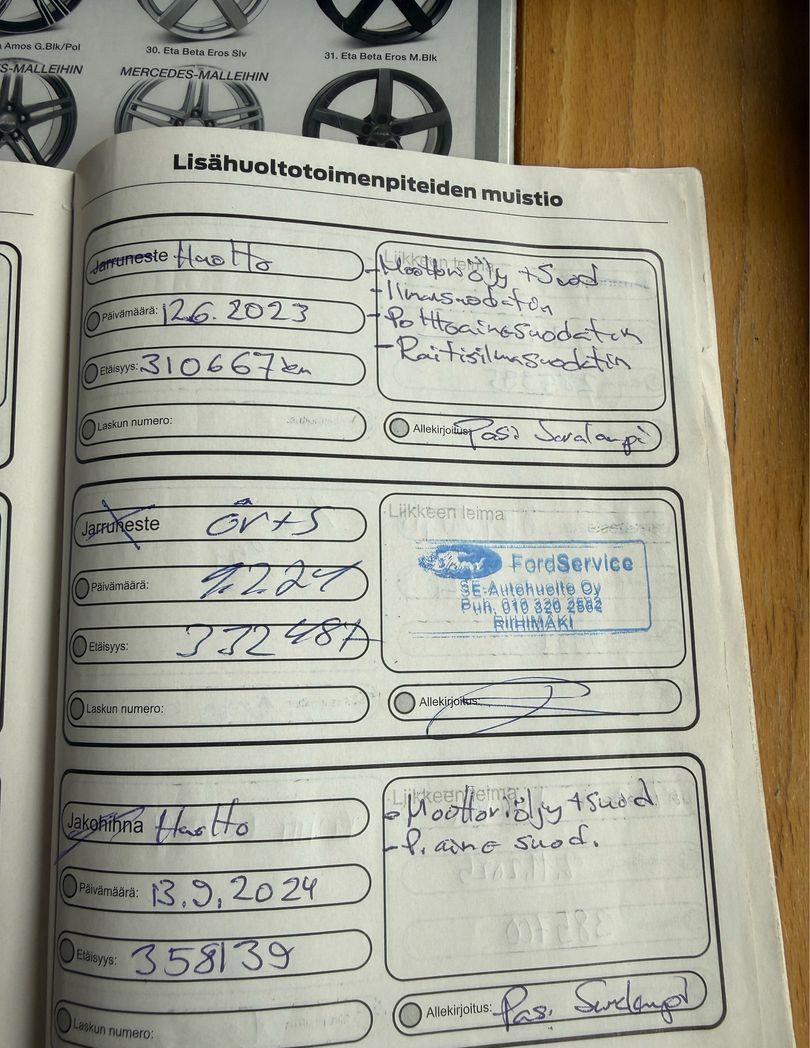 a Amos G.Blk/Pol
30. Eta Beta Eros Slv
31. Eta Beta Eros M.Blk
S-MALLEIHIN
MERCEDES-MALLEIHIN
Lisähuoltotoimenpiteiden muistio
Jarruneste Huolto
Päivämäärä: 12.6.2023
Etäisyys: 310667 km
Laskun numero:
Liikkeen leima
- Moottoriöljy + Suod
- Ilmansuodatin
- Polttoainesuodatin
- Raitisilmasuodatin
Allekirjoitus: Pasi
Jarruneste
Päivämäärä: 9.2.24
Etäisyys: 332487
Laskun numero:
Liikkeen leima
Ford FordService
SE-Autohuolto Oy
Puh. 010 320 2582
RIIHIMÄKI
Allekirjoitus:
Jakohihna Huolto
Päivämäärä: 13.9.2024
Etäisyys: 358139
Laskun numero:
Liikkeen leima
- Moottoriöljy + Suod
- P. aine suod.
Allekirjoitus: Pasi